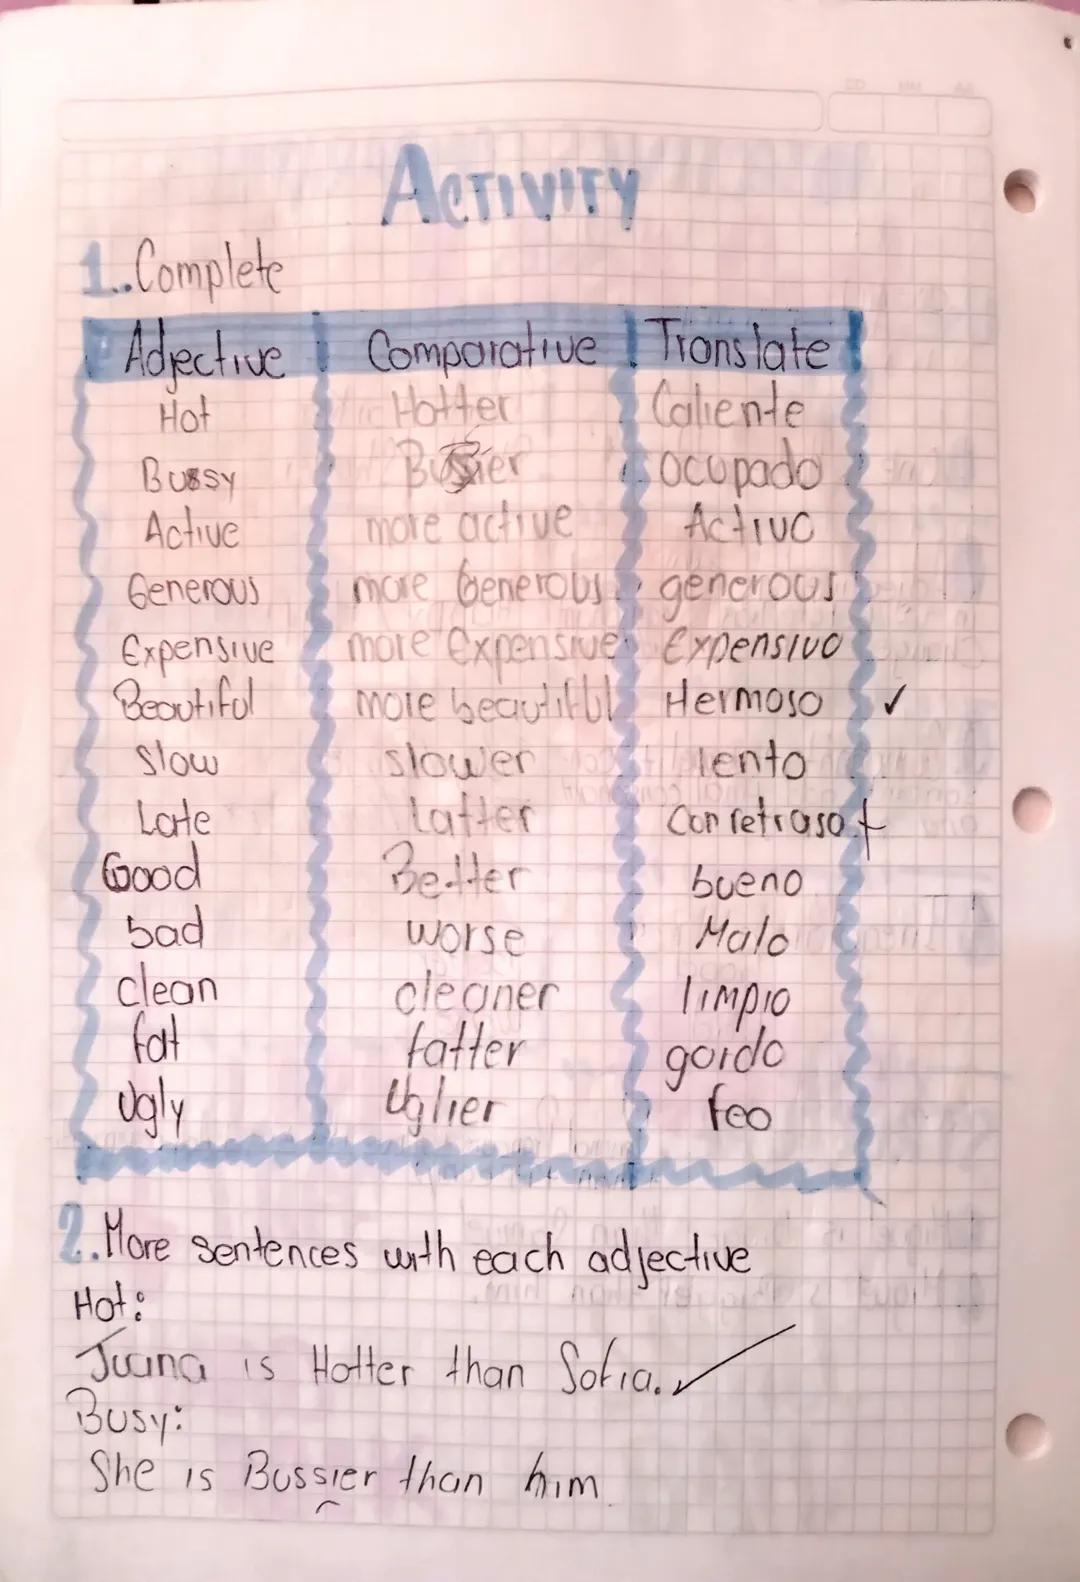 ACTIVITY
1..Complete
Adjective Comparative Translate
Hot Hotter Caliente
Bussy Busier ocupado
Active more active Activo
Generous more Generous generous
Expensive more Expensive Expensivo
Beautiful more beautiful Hermoso ✓
Slow slower lento
Late Latter Con retraso
Good Better bueno
bad worse Malo
clean cleaner limpio
fat fatter gordo
Ugly Uglier feo
2..More sentences with each adjective
Hot:
Juana is Hotter than Sofia. ✓
Busy:
She is Bussier than him